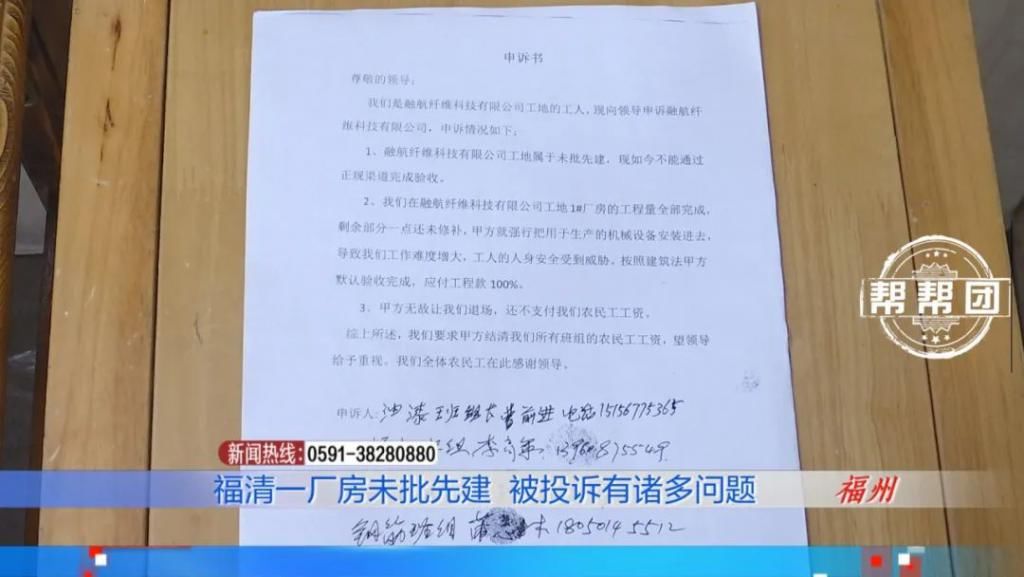 申诉书
尊敬的领导:
我们是融航纤维科技有限公司工地的工人,现向领导申诉融航纤
维科技有限公司,申诉情况如下:
1、融航纤维科技有限公司工地属于未批先建,现如今不能通过
正规渠道完成验收。
2、我们在融航纤维科技有限公司工地1#厂房的工程量全部完成,
剩余部分一点还未修补,甲方就强行把用于生产的机械设备安装进去,
导致我们工作难度增大,工人的人身安全受到威胁。按照建筑法甲方
默认验收完成,应付工程款100%。
3、甲方无故让我们退场,还不支付我们农民工工资。
综上所述,我们要求甲方结清我们所有班组的农民工工资,望领导
给予重视。我们全体农民工在此感谢领导。
帮帮团
申诉人:油漆班组长曹前进 电话15156775365
组 李
新闻热线:0591-38280880
福清一厂房未批先建 被投诉有诸多问题
福州
钢筋班组